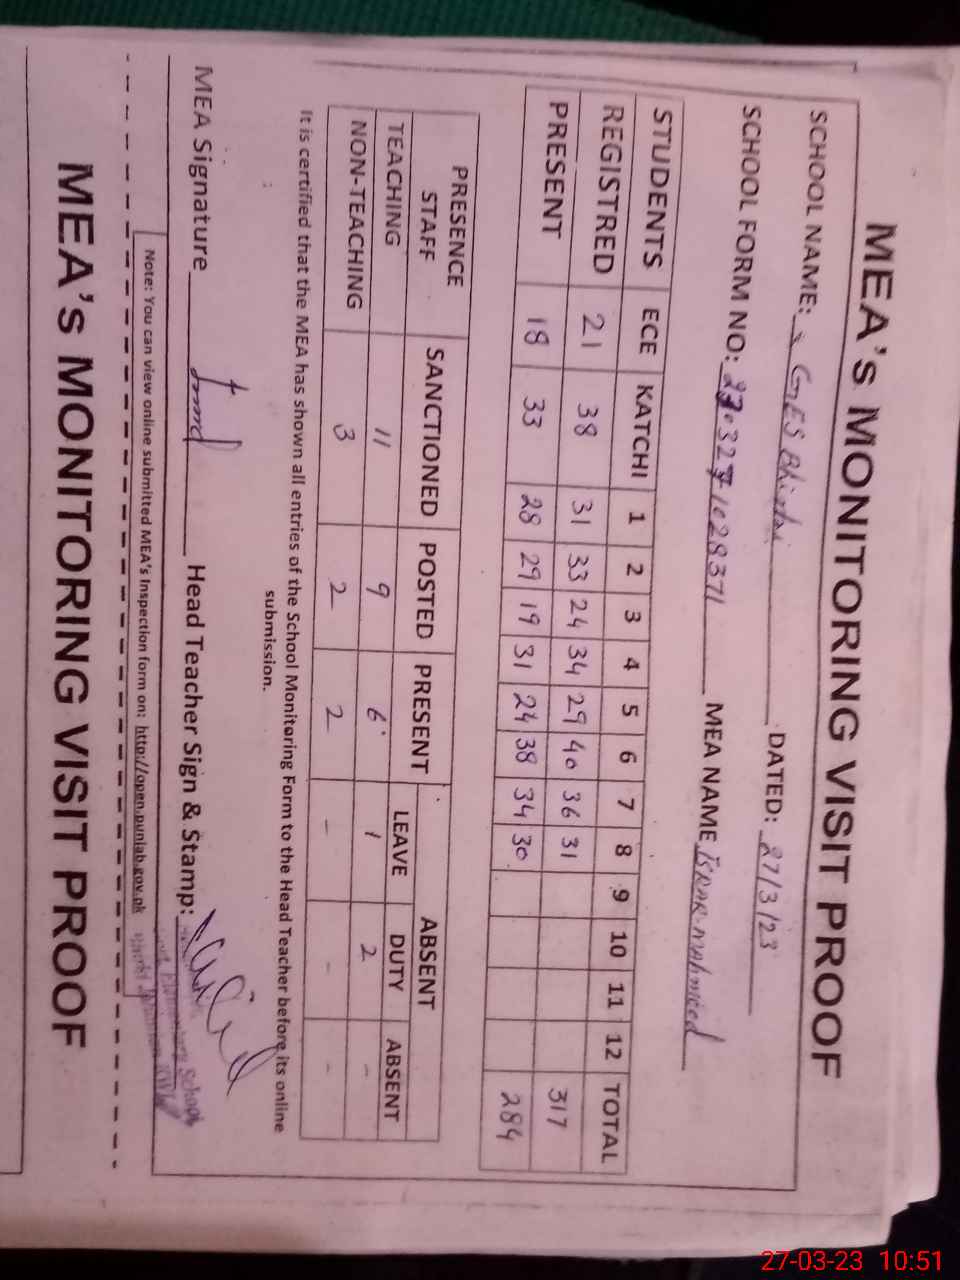 MEA's MONITORING VISIT PROOF
SCHOOL NAME: GES DATED: 27/3/23
SCHOOL FORM NO: MEA NAME ISRAR MAHMOOD
STUDENTS ECE KATCHI 1 2 3 4 5 6 7 8 9 10 11 12 TOTAL
REGISTRED 21 38 31 33 24 34 29 40 36 31 317
PRESENT 18 33 28 29 19 31 24 38 34 30 284
PRESENCE STAFF SANCTIONED POSTED PRESENT ABSENT
LEAVE DUTY ABSENT
TEACHING 11 9 6 1 2 -
NON-TEACHING 3 2 2 - - -
It is certified that the MEA has shown all entries of the School Monitoring Form to the Head Teacher before its online
submission.
MEA Signature Head Teacher Sign & Stamp:
Elementary School
Note: You can view online submitted MEA's Inspection form on: http://open.punjab.gov.pk
MEA's MONITORING VISIT PROOF
27-03-23 10:51